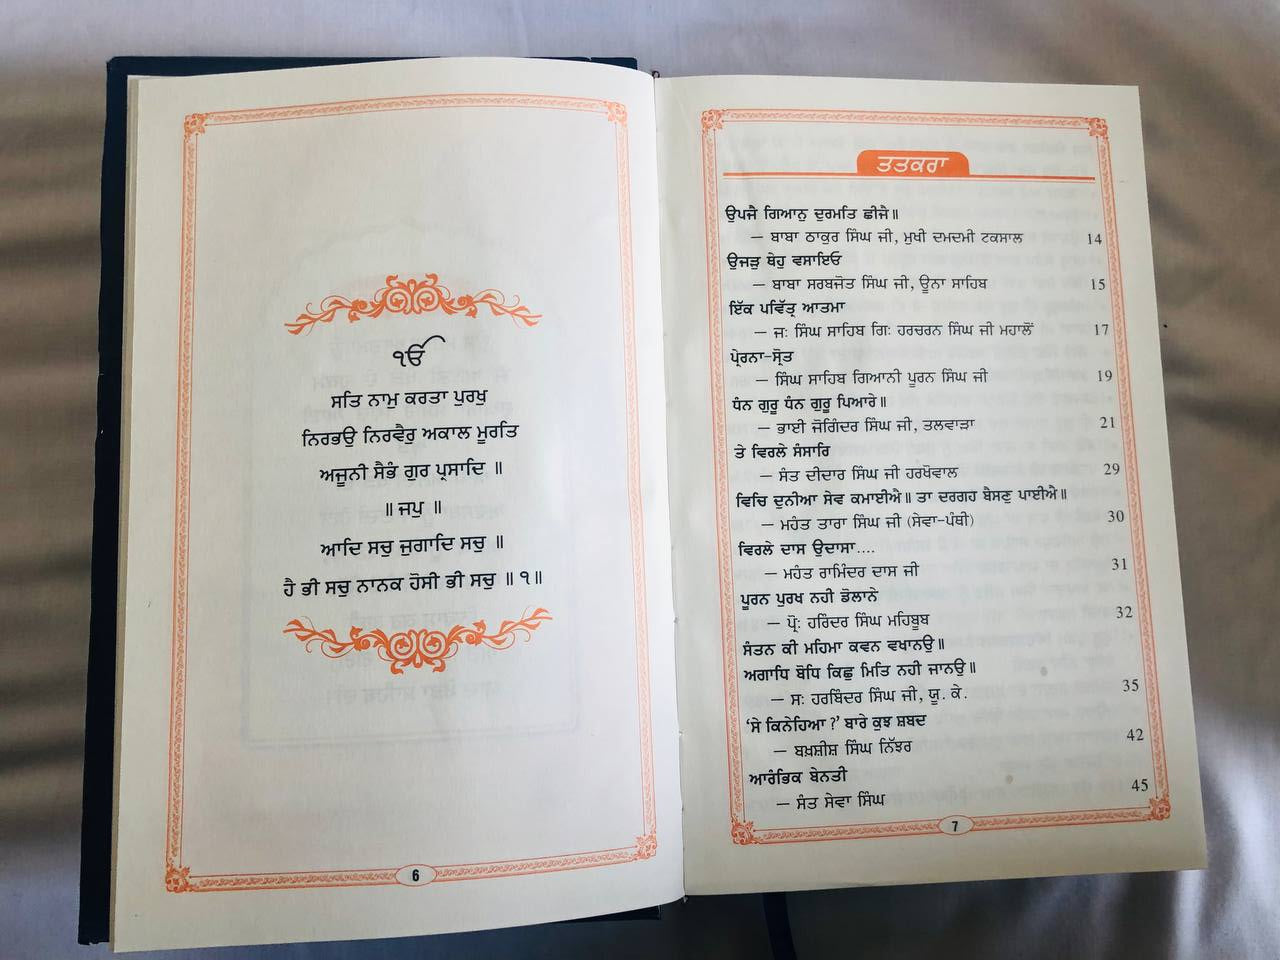 ੴ
ਸਤਿ ਨਾਮੁ ਕਰਤਾ ਪੁਰਖੁ
ਨਿਰਭਉ ਨਿਰਵੈਰੁ ਅਕਾਲ ਮੂਰਤਿ
ਅਜੂਨੀ ਸੈਭੰ ਗੁਰ ਪ੍ਰਸਾਦਿ ॥
॥ ਜਪੁ ॥
ਆਦਿ ਸਚੁ ਜੁਗਾਦਿ ਸਚੁ ॥
ਹੈ ਭੀ ਸਚੁ ਨਾਨਕ ਹੋਸੀ ਭੀ ਸਚੁ ॥੧॥
6
ਤਤਕਰਾ
ਉਪਜੈ ਗਿਆਨੁ ਦੁਰਮਤਿ ਛੀਜੈ॥
– ਬਾਬਾ ਠਾਕੁਰ ਸਿੰਘ ਜੀ, ਮੁਖੀ ਦਮਦਮੀ ਟਕਸਾਲ 14
ਉਜੜੁ ਥੇਹੁ ਵਸਾਇਓ
– ਬਾਬਾ ਸਰਬਜੋਤ ਸਿੰਘ ਜੀ, ਊਨਾ ਸਾਹਿਬ 15
ਇੱਕ ਪਵਿੱਤ੍ਰ ਆਤਮਾ
– ਜਃ ਸਿੰਘ ਸਾਹਿਬ ਗਿਃ ਹਰਚਰਨ ਸਿੰਘ ਜੀ ਮਹਾਲੋਂ 17
ਪ੍ਰੇਰਨਾ-ਸ੍ਰੋਤ
– ਸਿੰਘ ਸਾਹਿਬ ਗਿਆਨੀ ਪੂਰਨ ਸਿੰਘ ਜੀ 19
ਧੰਨ ਗੁਰੂ ਧੰਨ ਗੁਰੂ ਪਿਆਰੇ॥
– ਭਾਈ ਜੋਗਿੰਦਰ ਸਿੰਘ ਜੀ, ਤਲਵਾੜਾ 21
ਤੇ ਵਿਰਲੇ ਸੰਸਾਰਿ
– ਸੰਤ ਦੀਦਾਰ ਸਿੰਘ ਜੀ ਹਰਖੋਵਾਲ 29
ਵਿਚਿ ਦੁਨੀਆ ਸੇਵ ਕਮਾਈਐ॥ ਤਾ ਦਰਗਹ ਬੈਸਣੁ ਪਾਈਐ॥
– ਮਹੰਤ ਤਾਰਾ ਸਿੰਘ ਜੀ (ਸੇਵਾ-ਪੰਥੀ) 30
ਵਿਰਲੇ ਦਾਸ ਉਦਾਸਾ....
– ਮਹੰਤ ਰਾਮਿੰਦਰ ਦਾਸ ਜੀ 31
ਪੂਰਨ ਪੁਰਖ ਨਹੀ ਡੋਲਾਨੇ
– ਪ੍ਰੋਃ ਹਰਿੰਦਰ ਸਿੰਘ ਮਹਿਬੂਬ 32
ਸੰਤਨ ਕੀ ਮਹਿਮਾ ਕਵਨ ਵਖਾਨਉ॥
ਅਗਾਧਿ ਬੋਧਿ ਕਿਛੁ ਮਿਤਿ ਨਹੀ ਜਾਨਉ॥
– ਸਃ ਹਰਬਿੰਦਰ ਸਿੰਘ ਜੀ, ਯੂ. ਕੇ. 35
'ਸੇ ਕਿਨੇਹਿਆ ?' ਬਾਰੇ ਕੁਝ ਸ਼ਬਦ
– ਬਖ਼ਸ਼ੀਸ਼ ਸਿੰਘ ਨਿੱਝਰ 42
ਆਰੰਭਿਕ ਬੇਨਤੀ
– ਸੰਤ ਸੇਵਾ ਸਿੰਘ 45
7